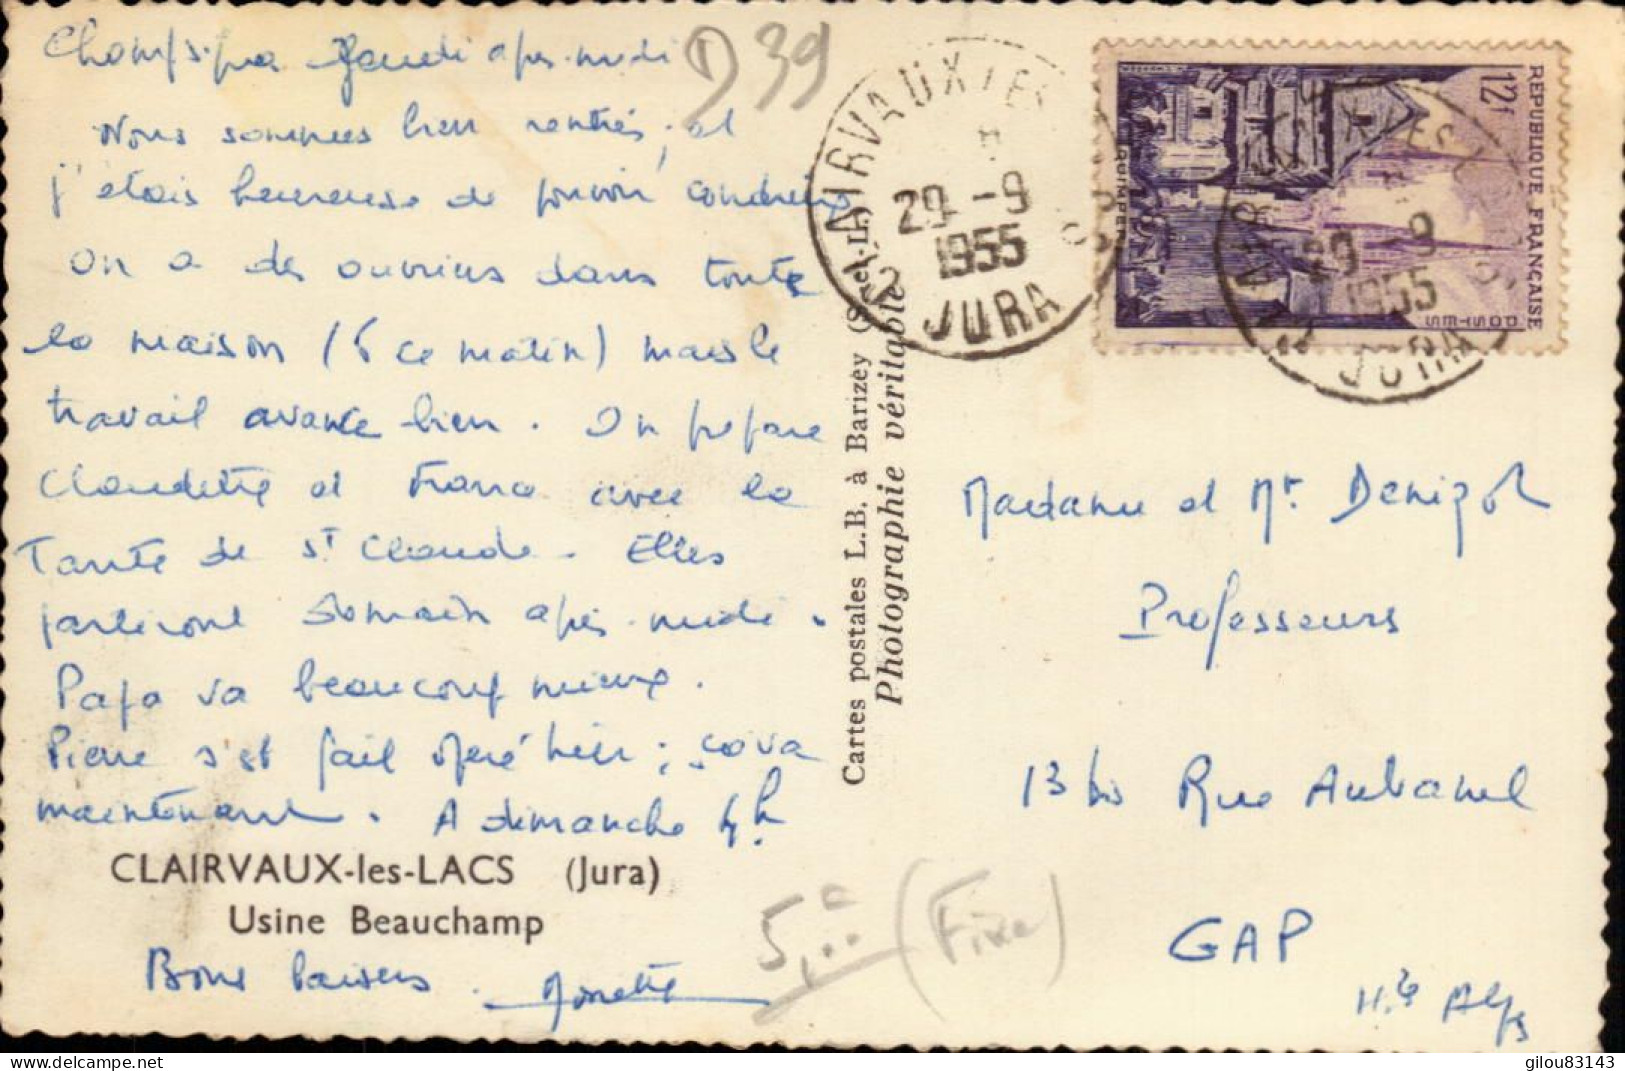 Jeudi après-midi
D39
Nous sommes bien rentrés, et
j'étais heureuse de pouvoir conduire
On a des ouvriers dans toute
la maison (6 ce matin) mais le
travail avance bien. On prépare
Claudette et France avec la
Tante de St Claude. Elles
partiront demain après-midi.
Papa va beaucoup mieux.
Pierre s'est fait opéré hier ; ça va
maintenant. A dimanche 4h
CLAIRVAUX-les-LACS (Jura)
Usine Beauchamp
Bons baisers.
Cartes postales L.B. à Barizey (S.-et-L.)
Photographie véritable
CLAIRVAUX LES
29 -9
1955
JURA
12f
REPUBLIQUE FRANÇAISE
QUIMPER
POSTES
29 -9
1955
JURA
Madame et Mr Denizot
Professeurs
13 bis Rue Aubanel
GAP
Htes Alpes
5,00 (Fixe)
delcampe.net
gilou83143